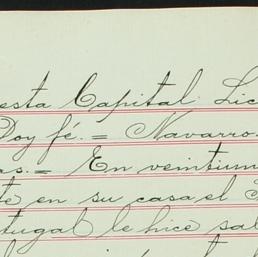 esta Capital. Lic
Doy fé. = Navarro
as. = En veintiun
té en su casa el
tugal le hice sa